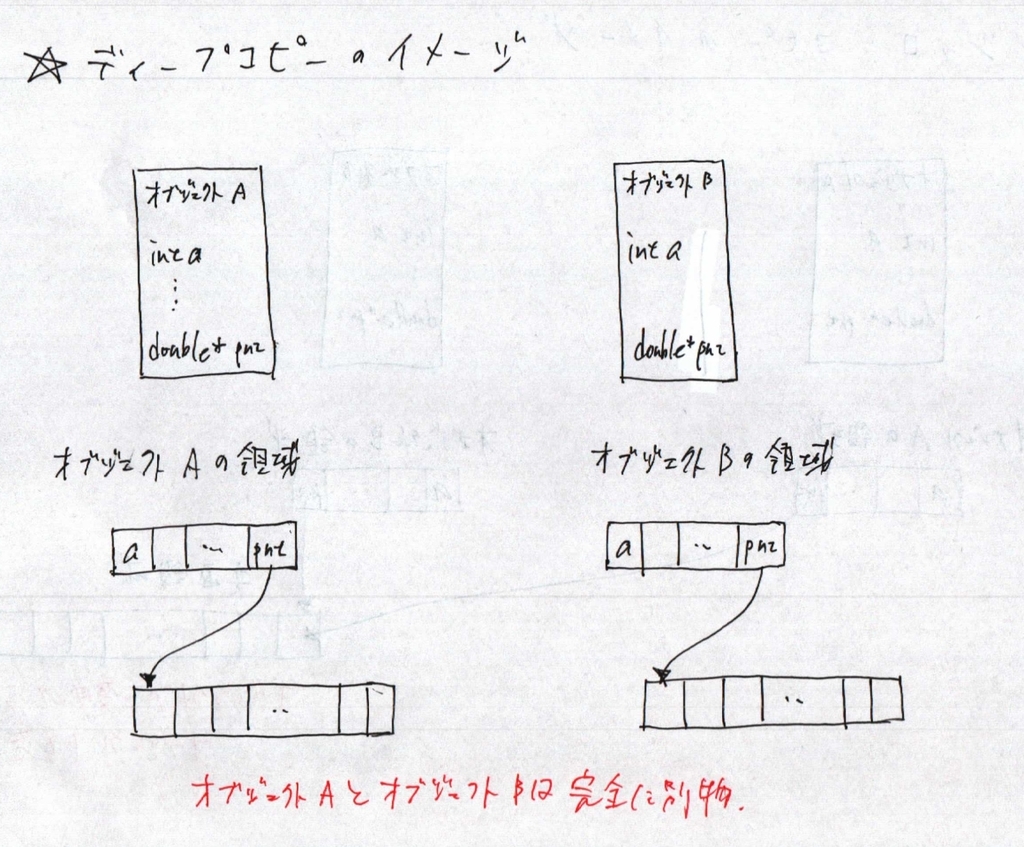 ☆ ディープコピーのイメージ
オブジェクト A
int a
⋮
double* pnt
オブジェクト B
int a
double* pnt
オブジェクト A の領域
オブジェクト B の領域
a … pnt
a … pnt
…
…
オブジェクト A と オブジェクト B は 完全に別物.